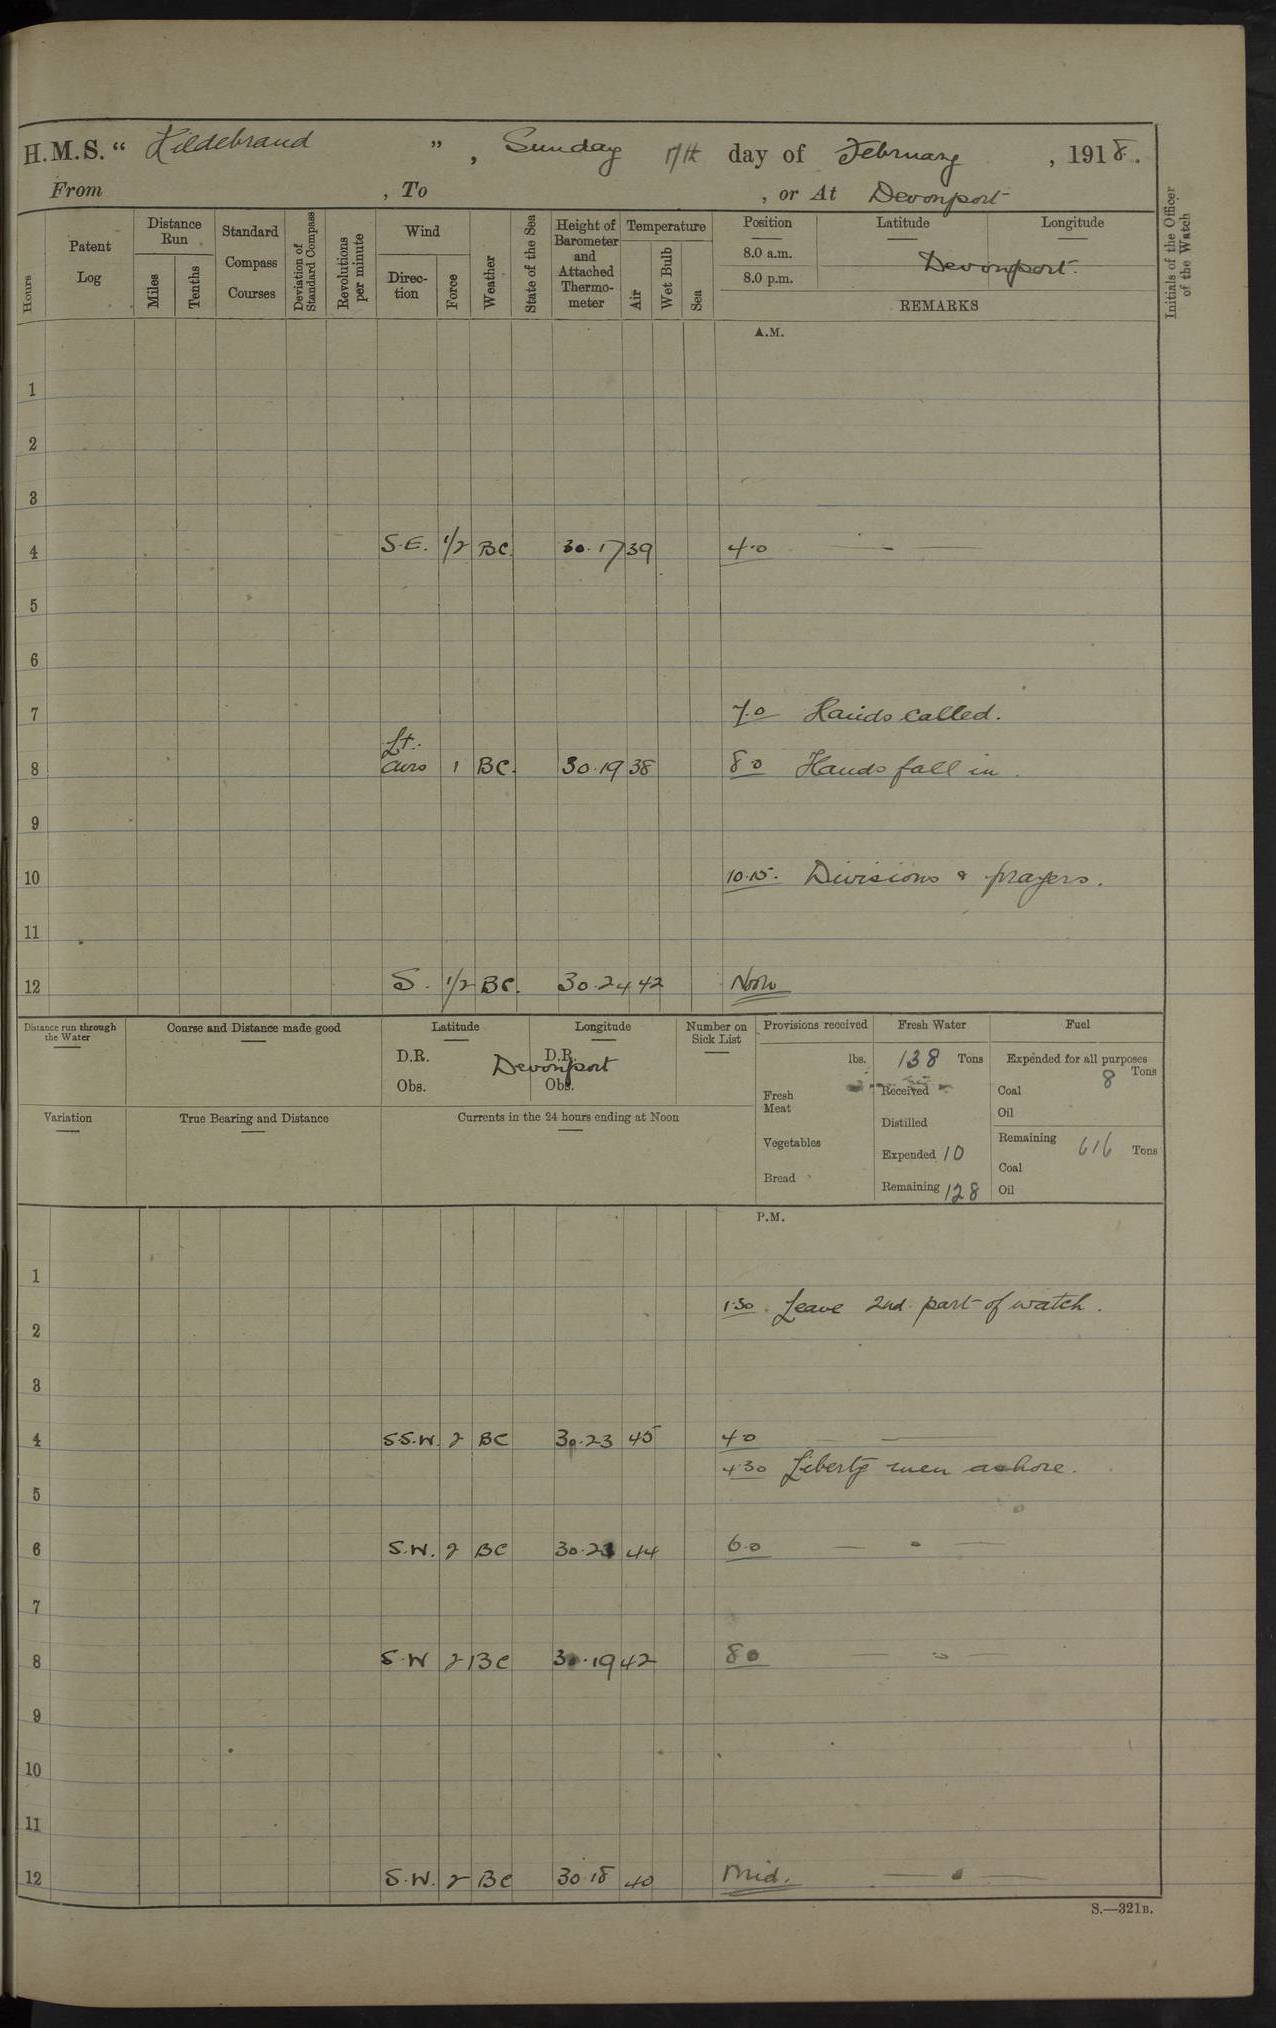 H.M.S. “ Hildebrand ” , Sunday 17th day of February , 1918.
From , To , or At Devonport
Hours
Patent Log
Distance Run
Miles
Tenths
Standard Compass Courses
Deviation of Standard Compass
Revolutions per minute
Wind
Direc-tion
Force
Weather
State of the Sea
Height of Barometer and Attached Thermo-meter
Temperature
Air
Wet Bulb
Sea
Position
8.0 a.m.
8.0 p.m.
Latitude
Longitude
Devonport.
REMARKS
Initials of the Officer of the Watch
A.M.
1
2
3
4 S.E. 1/2 BC. 30.17 39 4.0
5
6
7 7.0 Hands called.
8 Lt. airs 1 BC. 30.19 38 8.0 Hands fall in.
9
10 10.15. Divisions & prayers.
11
12 S. 1/2 BC. 30.24 42 Noon
Distance run through the Water
Course and Distance made good
Latitude
D.R.
Obs.
Longitude
D.R.
Obs.
Devonport
Number on Sick List
Provisions received
lbs.
Fresh Meat
Vegetables
Bread
Fresh Water
138 Tons
Received
Distilled
Expended 10
Remaining 128
Fuel
Expended for all purposes
8 Tons
Coal
Oil
Remaining 616 Tons
Coal
Oil
Variation
True Bearing and Distance
Currents in the 24 hours ending at Noon
P.M.
1
1.30. Leave 2nd. part of watch.
2
3
4 S.S.W. 2 BC 30.23 45 4.0
4.30 Liberty men ashore.
5
6 S.W. 2 BC 30.21 44 6.0
7
8 S.W 2 BC 30.19 42 8.0
9
10
11
12 S.W. 2 BC 30.18 40 Mid.
S.—321B.